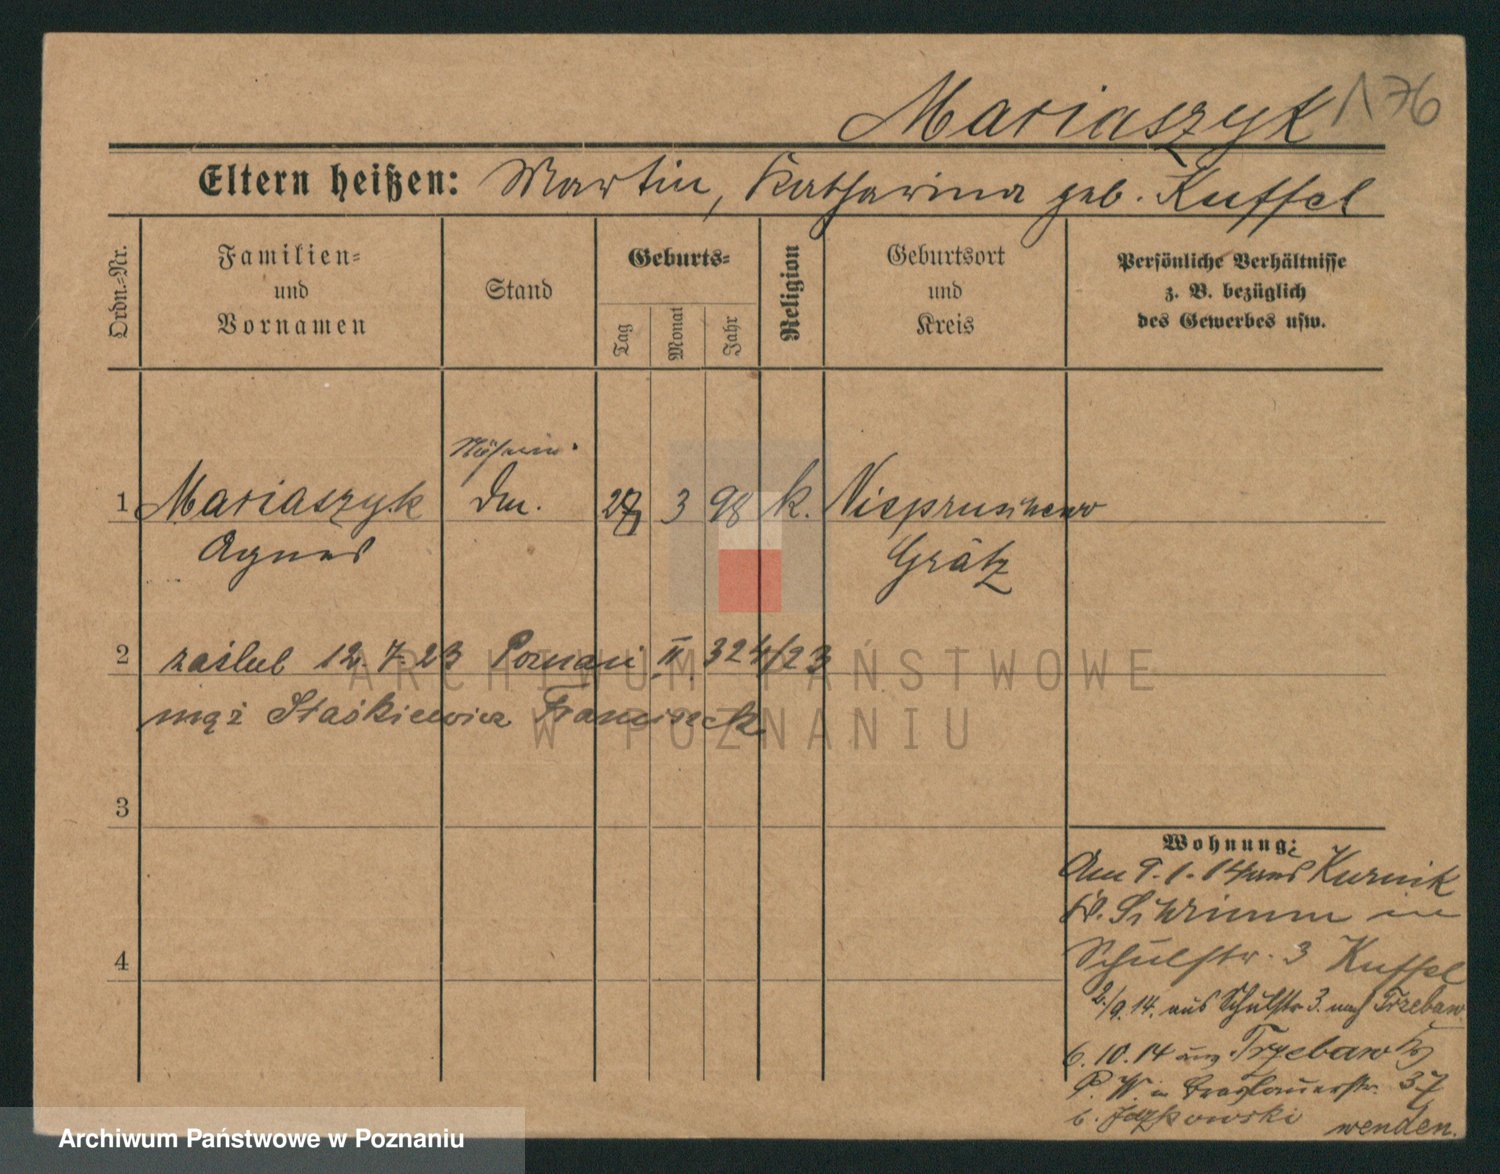 Mariaszyk 176
Eltern heißen: Martin, Katharina geb. Kuffel
Ordn.=Nr.
Familien=
und
Vornamen
Stand
Geburts=
Tag
Monat
Jahr
Religion
Geburtsort
und
Kreis
Persönliche Verhältnisse
z. B. bezüglich
des Gewerbes usw.
Näherin
1 Mariaszyk 3 98 k. Niepruschewo
Agnes Grätz
2 zaślub 12. 7. 23 Poznań II. 324/23
mąż Staśkiewicz Franciszek
3
4
Wohnung:
Am 9.1.14 aus Kurnik
Kr. Schrimm in
Schulstr. 3 Kuffel
2/9.14. aus Schulstr 3. nach Trzebaw
6.10.14 aus Trzebaw
P. W. in Breslauerstr. 37
b. wenden.
ARCHIWUM PAŃSTWOWE
W POZNANIU
Archiwum Państwowe w Poznaniu